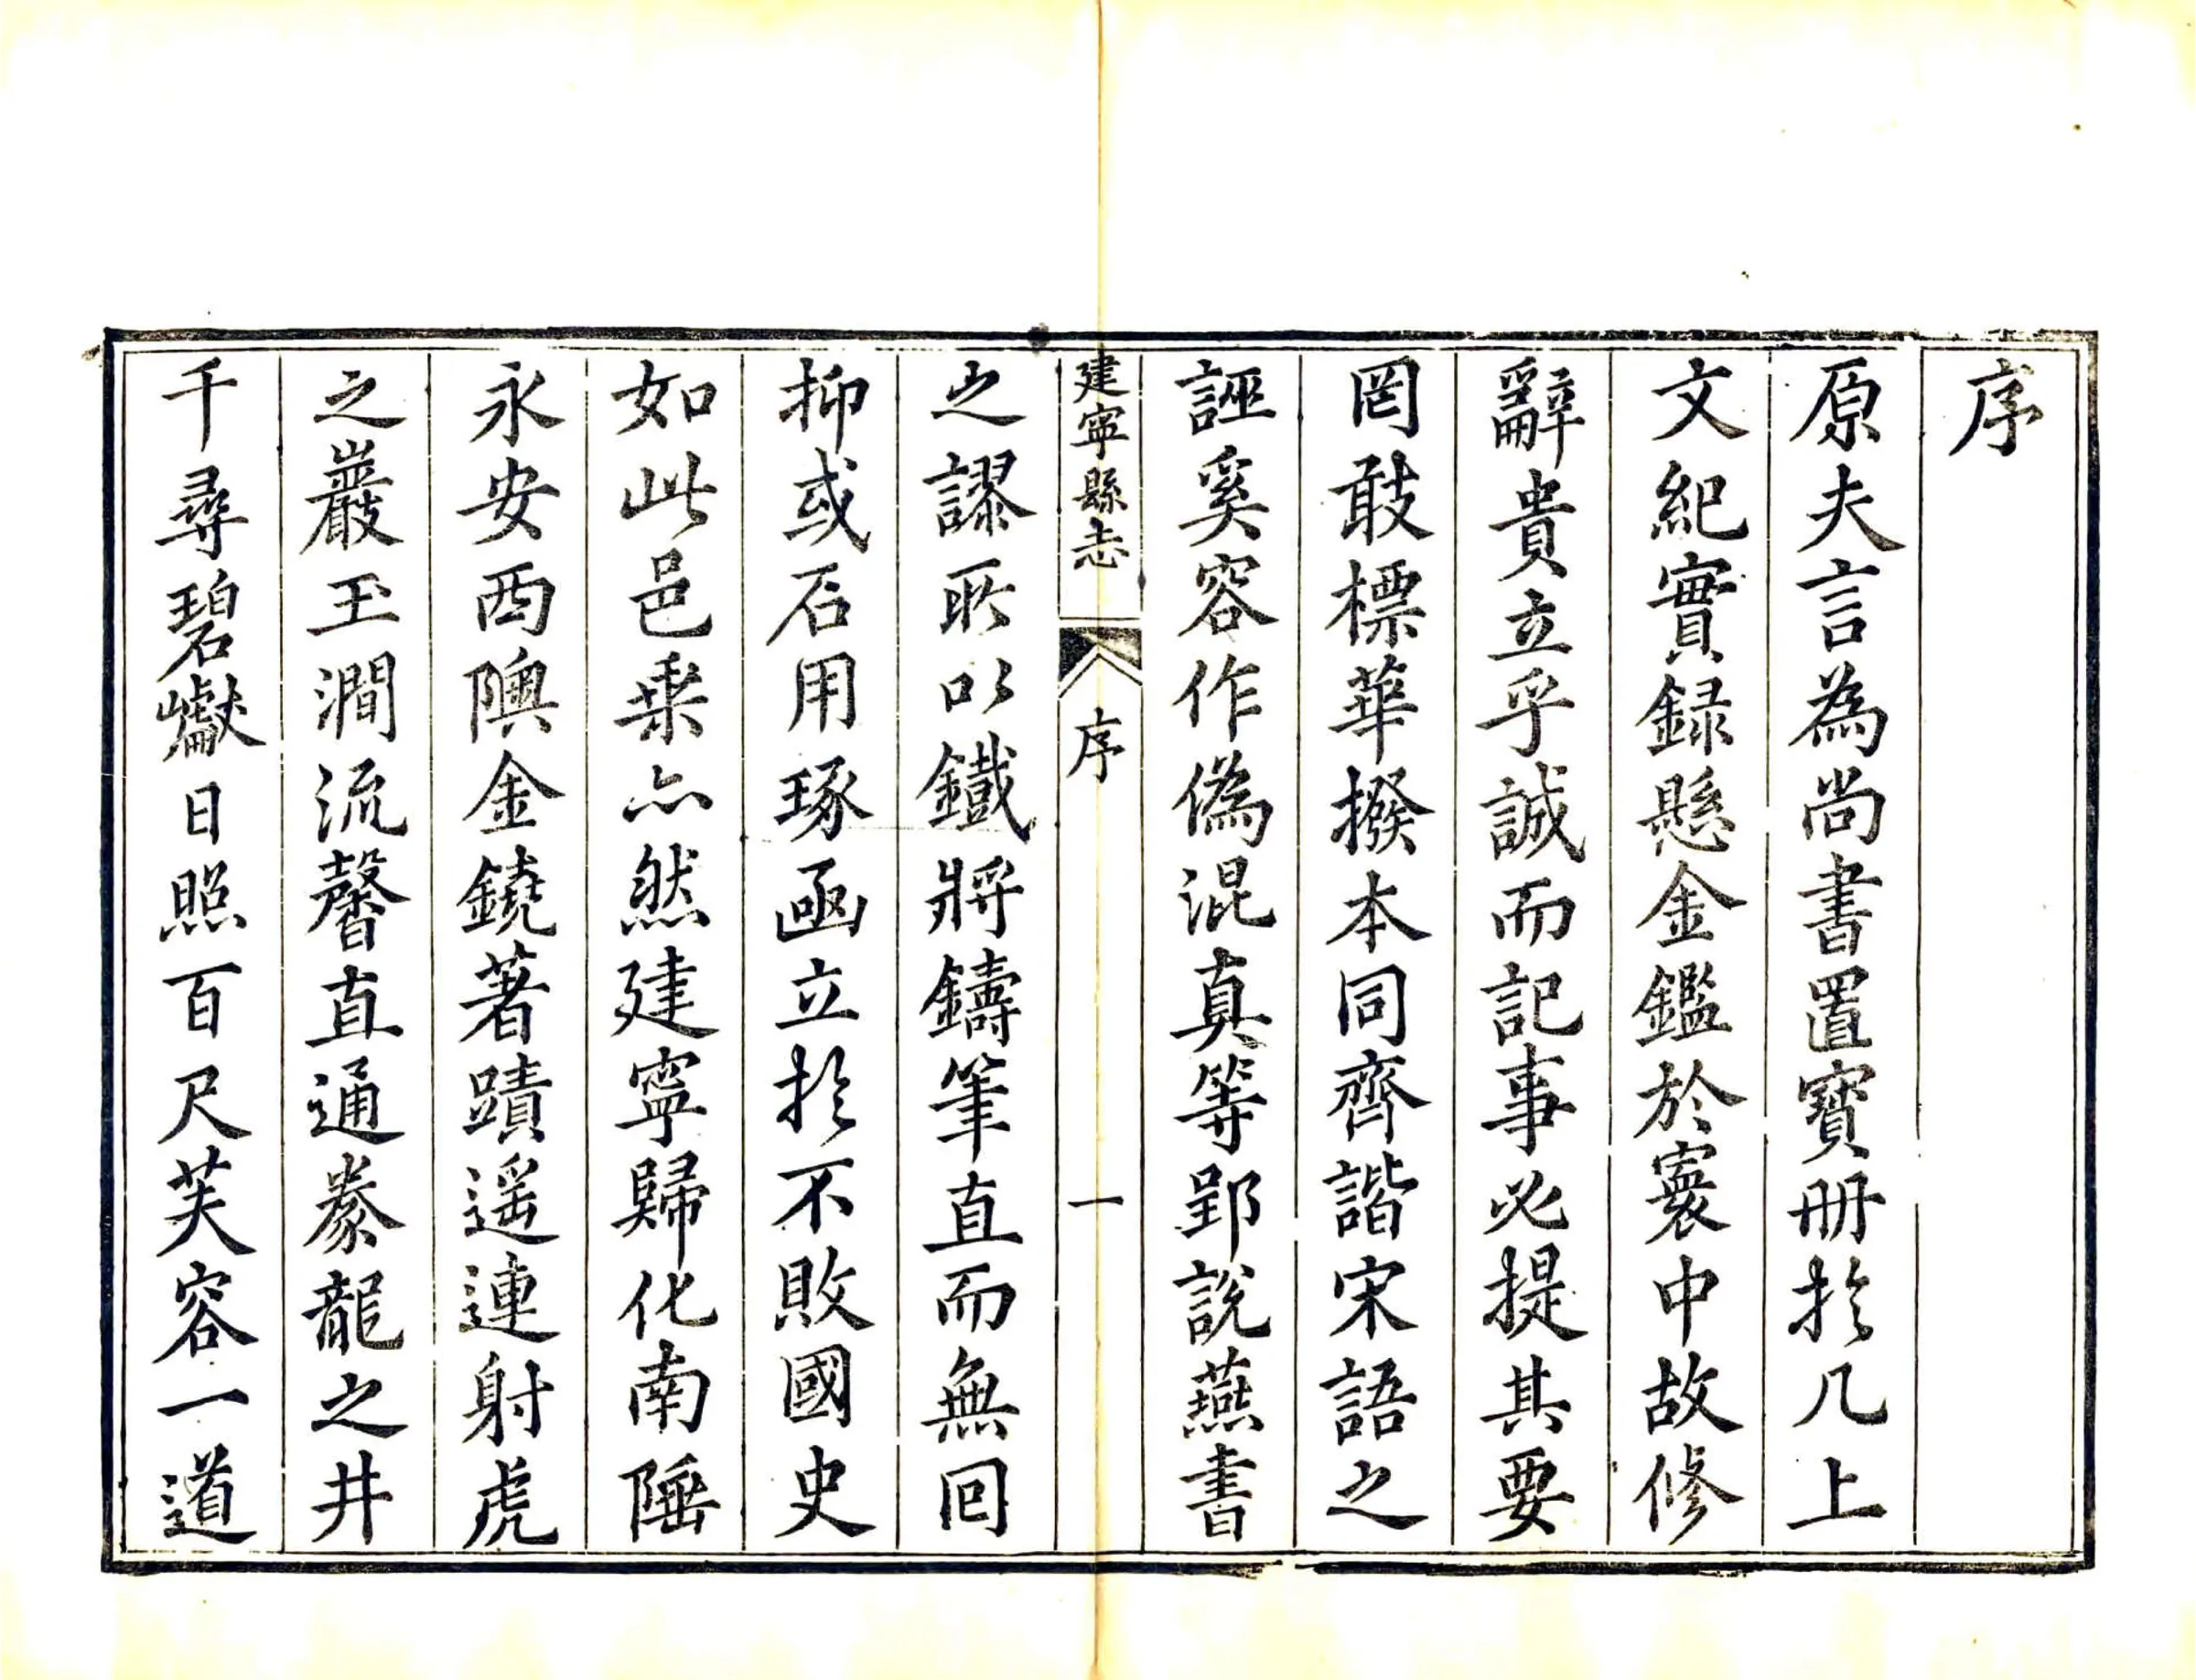 序
原夫言為尚書置寶册扵几上
文紀實録懸金鑑於寰中故修
辭貴立乎誠而記事必提其要
罔敢標華撥本同齊諧宋語之
誣奚容作偽混真等郢說燕書
之謬所以鐵將鑄筆直而無回
抑或石用琢函立扵不敗國史
如此邑乗亦然建寧歸化南陲
永安西隩金鐃著蹟遥連射虎
之巖玉澗流馨直通豢龍之井
千尋碧巘日照百尺芙容一道
建寧縣志 序 一